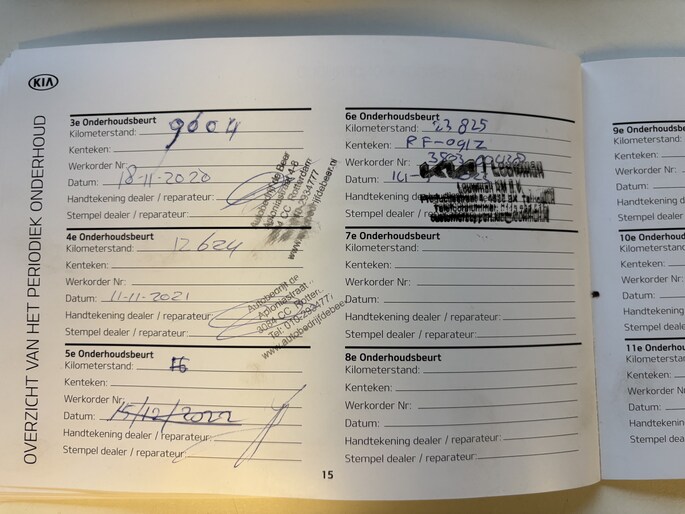 KIA
OVERZICHT VAN HET PERIODIEK ONDERHOUD
3e Onderhoudsbeurt
Kilometerstand: 9604
Kenteken:
Werkorder Nr:
Datum: 18-11-2020
Handtekening dealer / reparateur:
Stempel dealer / reparateur:
4e Onderhoudsbeurt
Kilometerstand: 12624
Kenteken:
Werkorder Nr:
Datum: 11-11-2021
Handtekening dealer / reparateur:
Stempel dealer / reparateur:
Autobedrijf de
Aploniastraat
3084 CC Rotter
Tel: 010-2934777
www.autobedrijfdebee
5e Onderhoudsbeurt
Kilometerstand:
Kenteken:
Werkorder Nr:
Datum: 15/12/2022
Handtekening dealer / reparateur:
Stempel dealer / reparateur:
6e Onderhoudsbeurt
Kilometerstand: 23825
Kenteken: RF-091Z
Werkorder Nr:
Datum:
Handtekening dealer / reparateur:
Stempel dealer / reparateur:
7e Onderhoudsbeurt
Kilometerstand:
Kenteken:
Werkorder Nr:
Datum:
Handtekening dealer / reparateur:
Stempel dealer / reparateur:
8e Onderhoudsbeurt
Kilometerstand:
Kenteken:
Werkorder Nr:
Datum:
Handtekening dealer / reparateur:
Stempel dealer / reparateur:
15
9e Onderhoudsbe
Kilometerstand
Kenteken:
Werkorder N
Datum:
Handtekening
Stempel deale
10e Onderhoud
Kilometerstand
Kenteken:
Werkorder N
Datum:
Handtekenin
Stempel dea
11e Onderho
Kilometersta
Kenteken:
Werkorder
Datum:
Handteken
Stempel d